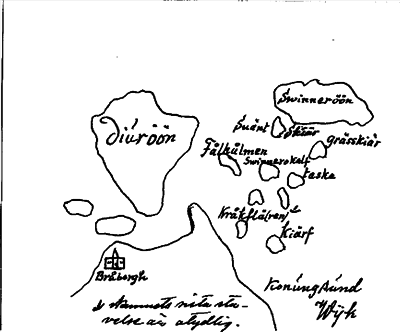 Swinneröön
Diuröön
Suänt
Skiär
grässkiär
Fålhålmen
Swinnerskalf
taska
Kråkfla(ren)
Kiärf
Bråborgh
Konung Aúnd
Wijk
Namnets sista sta-
velse är otydlig.